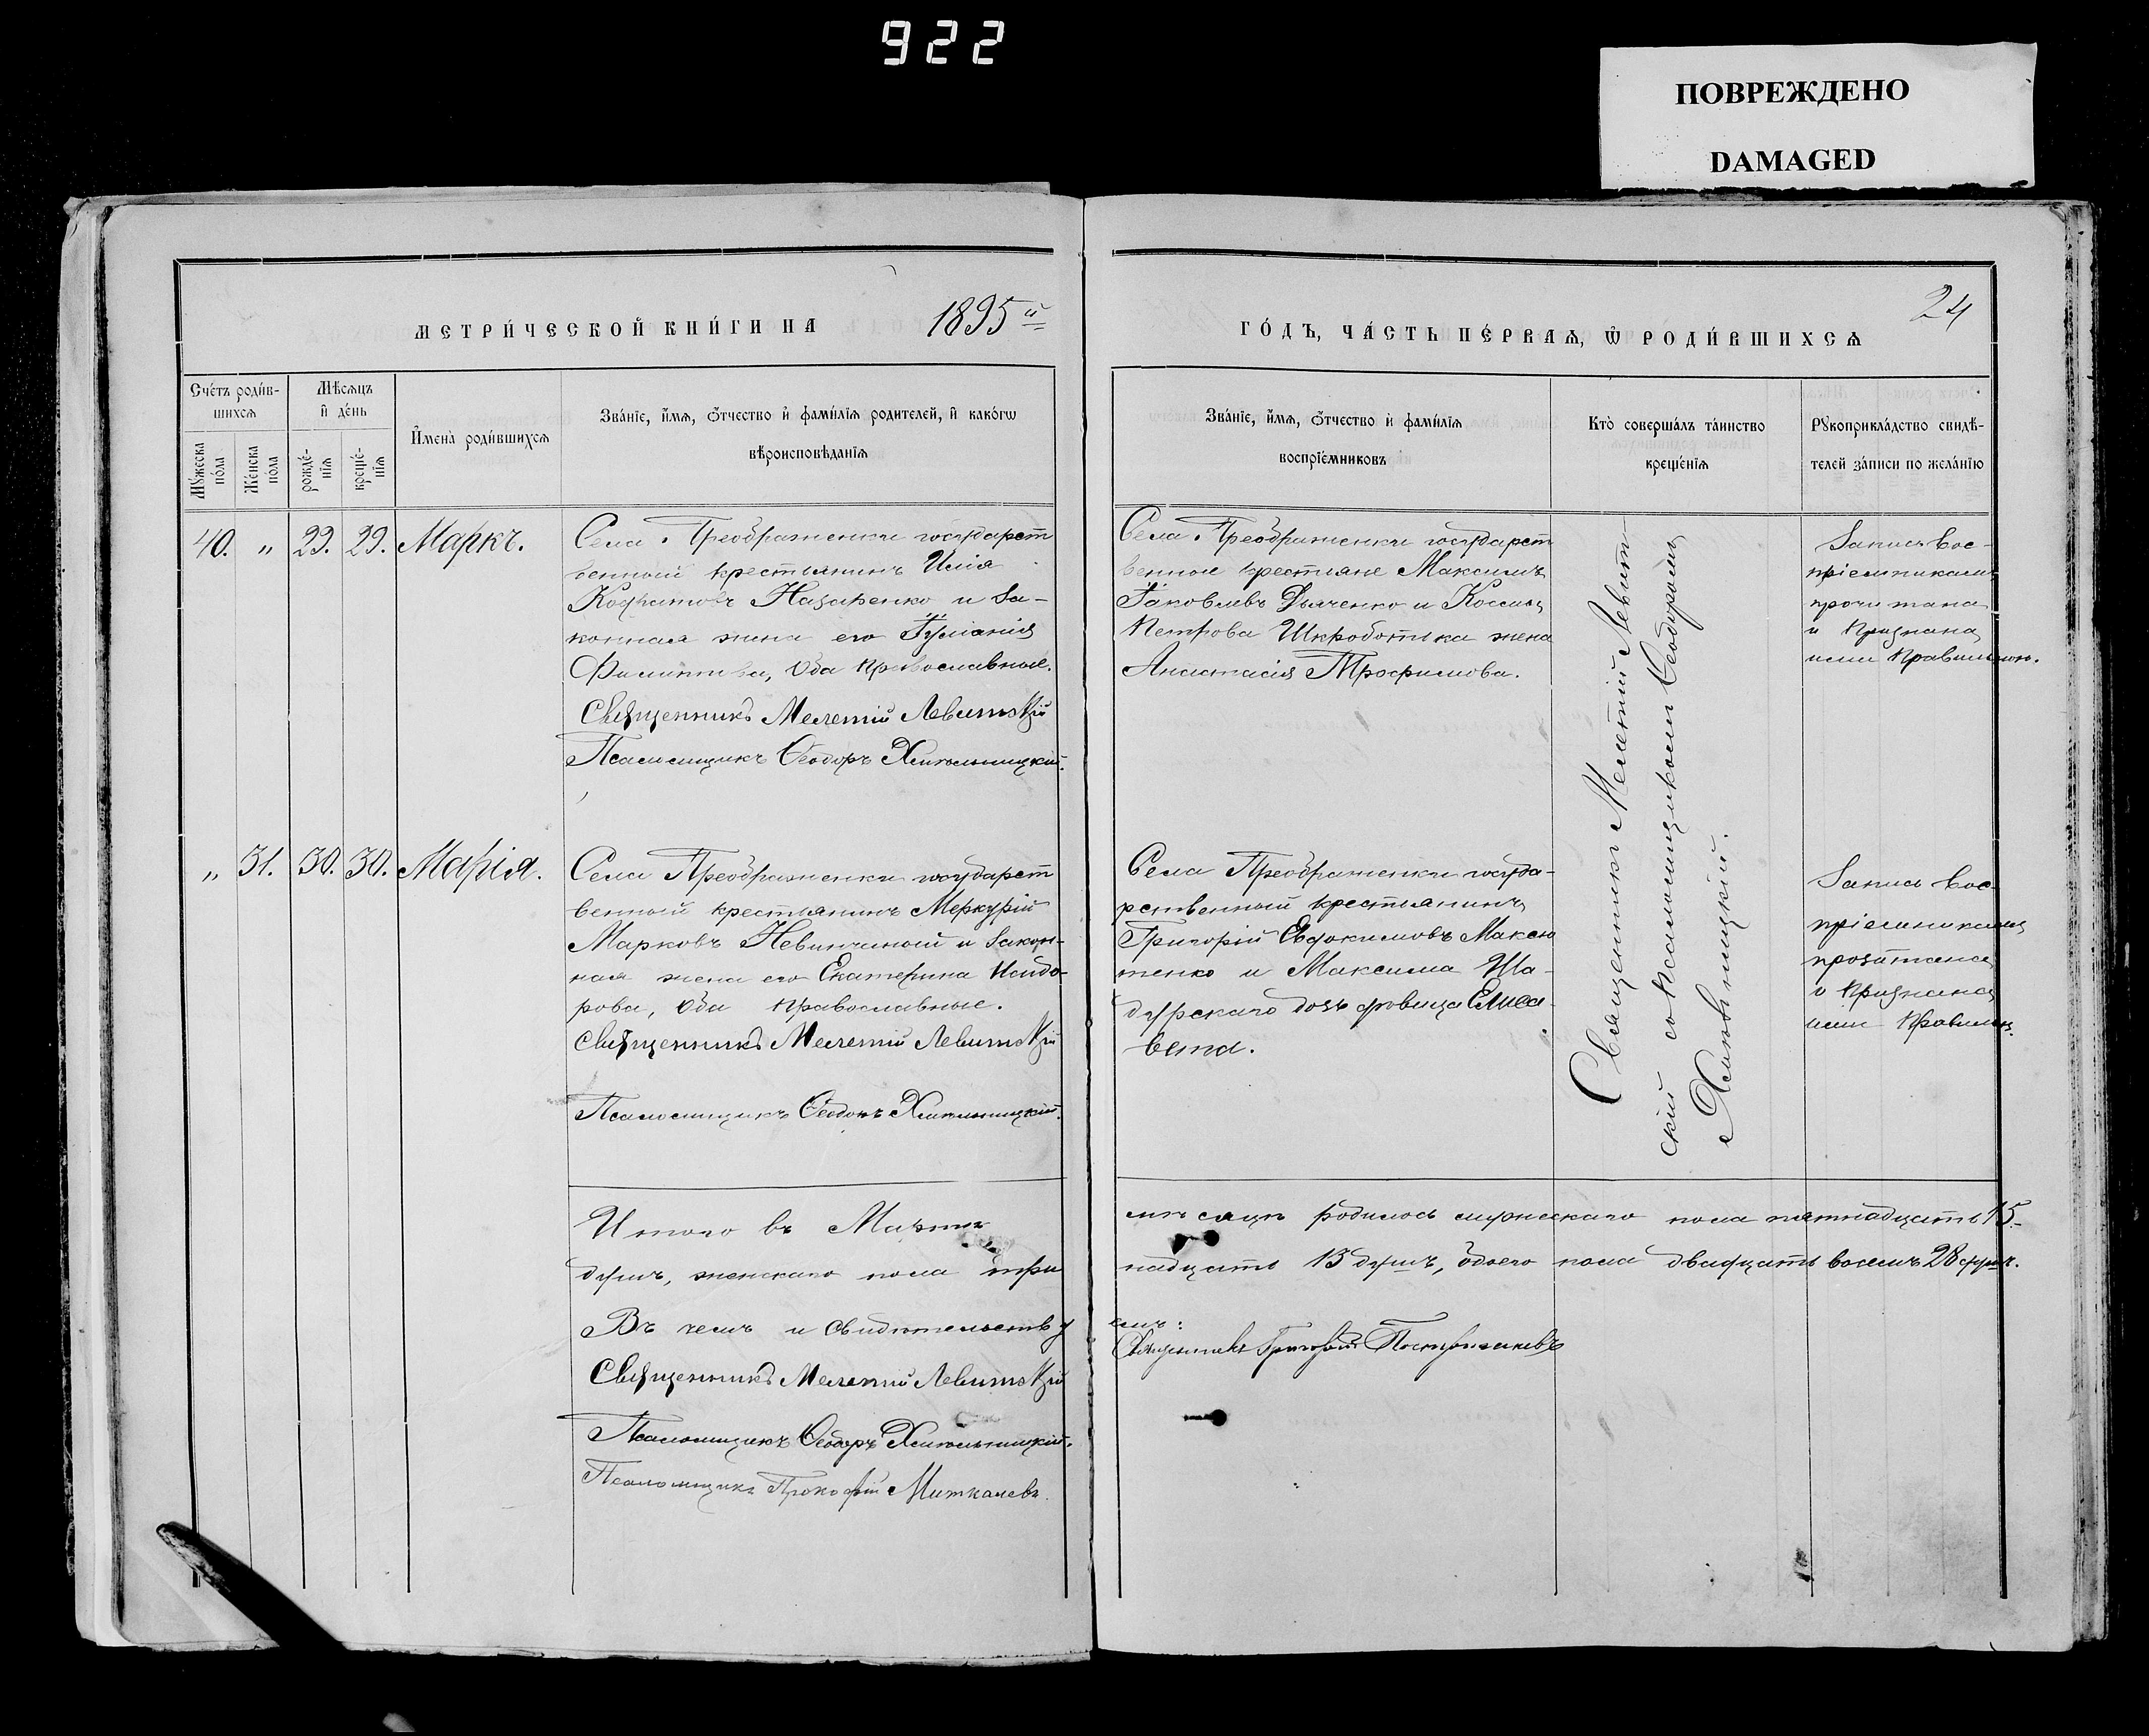 922
ПОВРЕЖДЕНО
DAMAGED
МЕТРИ́ЧЕСКОЙ КНИ́ГИ НА 1895й
ГО́ДЪ, ЧА́СТЬ ПЕ́РВАѦ, Ѿ РОДИ́ВШИХСѦ
24
Сче́тъ роди́в-
шихсѧ
Мѣ́сѧцъ
и҆ де́нь
Мꙋ́жеска
по́ла
Же́нска
по́ла
рожде́-
нїѧ
креще́-
нїѧ
И҆мена̀ роди́вшихсѧ
Зва́нїе, и҆́мѧ, ѻ҆́тчество и҆ фами́лїѧ родителей, и҆ како́гѡ
вѣроисповѣ́данїѧ
Зва́нїе, и҆́мѧ, ѻ҆́тчество и҆ фами́лїѧ
воспрїе́мниковъ
Кто̀ соверша́лъ та́инство
креще́нїѧ
Рꙋкоприкла́дство свидѣ́-
телей за́писи по жела́нїю
40. „ 29. 29. Маркъ.
Села Преображенки государст
венный крестьянинъ Илія
Назаренко и За-
конная жена его Іуліанія
Филиппова, Оба Православные.
Священникъ Мелетій Левитскій
Псаломщикъ Ѳеодоръ Хмельницкій.
Села Преображенки государст
венные крестьяне Максимъ
Іаковлевъ Дьяченко и Космы
Петрова Шкроботька жена
Анастасія Трофимова.
Священникъ Мелетій Левит-
скій со Псаломщикомъ Ѳеодоромъ
Хмельницкій.
Запись Вос-
пріемниками
прочитана
и Признана
ими Правильною.
„ 31. 30. 30. Марія.
Села Преображенки государст
венный крестьянинъ Меркурій
Марковъ Невинчаный и Закон-
ная жена его Екатерина Исидо-
рова, Оба Православные.
Священникъ Мелетій Левитскій
Псаломщикъ Ѳеодоръ Хмельницкій.
Села Преображенки госуда-
рственный крестьянинъ
Григорій Евдокимовъ Максю
тенко и Максима Ша-
дурскаго дочь дѣвица Елиса-
вета.
Запись Вос-
пріемниками
прочитана
и Признана
ими Правильн.
Итого въ Мартѣ мѣсяцѣ родилось мужескаго пола пятнадцать 15
душъ, женскаго пола три надцать 13 душъ, обоего пола двадцать восемь 28 душъ.
Въ чемъ и свидѣтельству емъ:
Священникъ Мелетій Левитскій
Священникъ Григорій
Псаломщикъ Ѳеодоръ Хмельницкій.
Псаломщикъ Прокофій Миткалевъ.